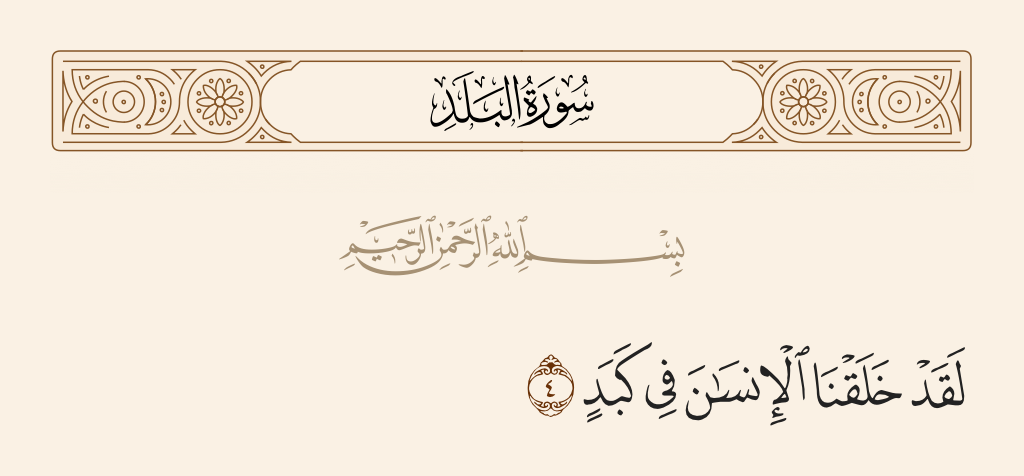 سُورَةُ البَلَدِ
بِسْمِ ٱللَّهِ ٱلرَّحْمَٰنِ ٱلرَّحِيمِ
لَقَدْ خَلَقْنَا ٱلْإِنسَٰنَ فِى كَبَدٍ ٤